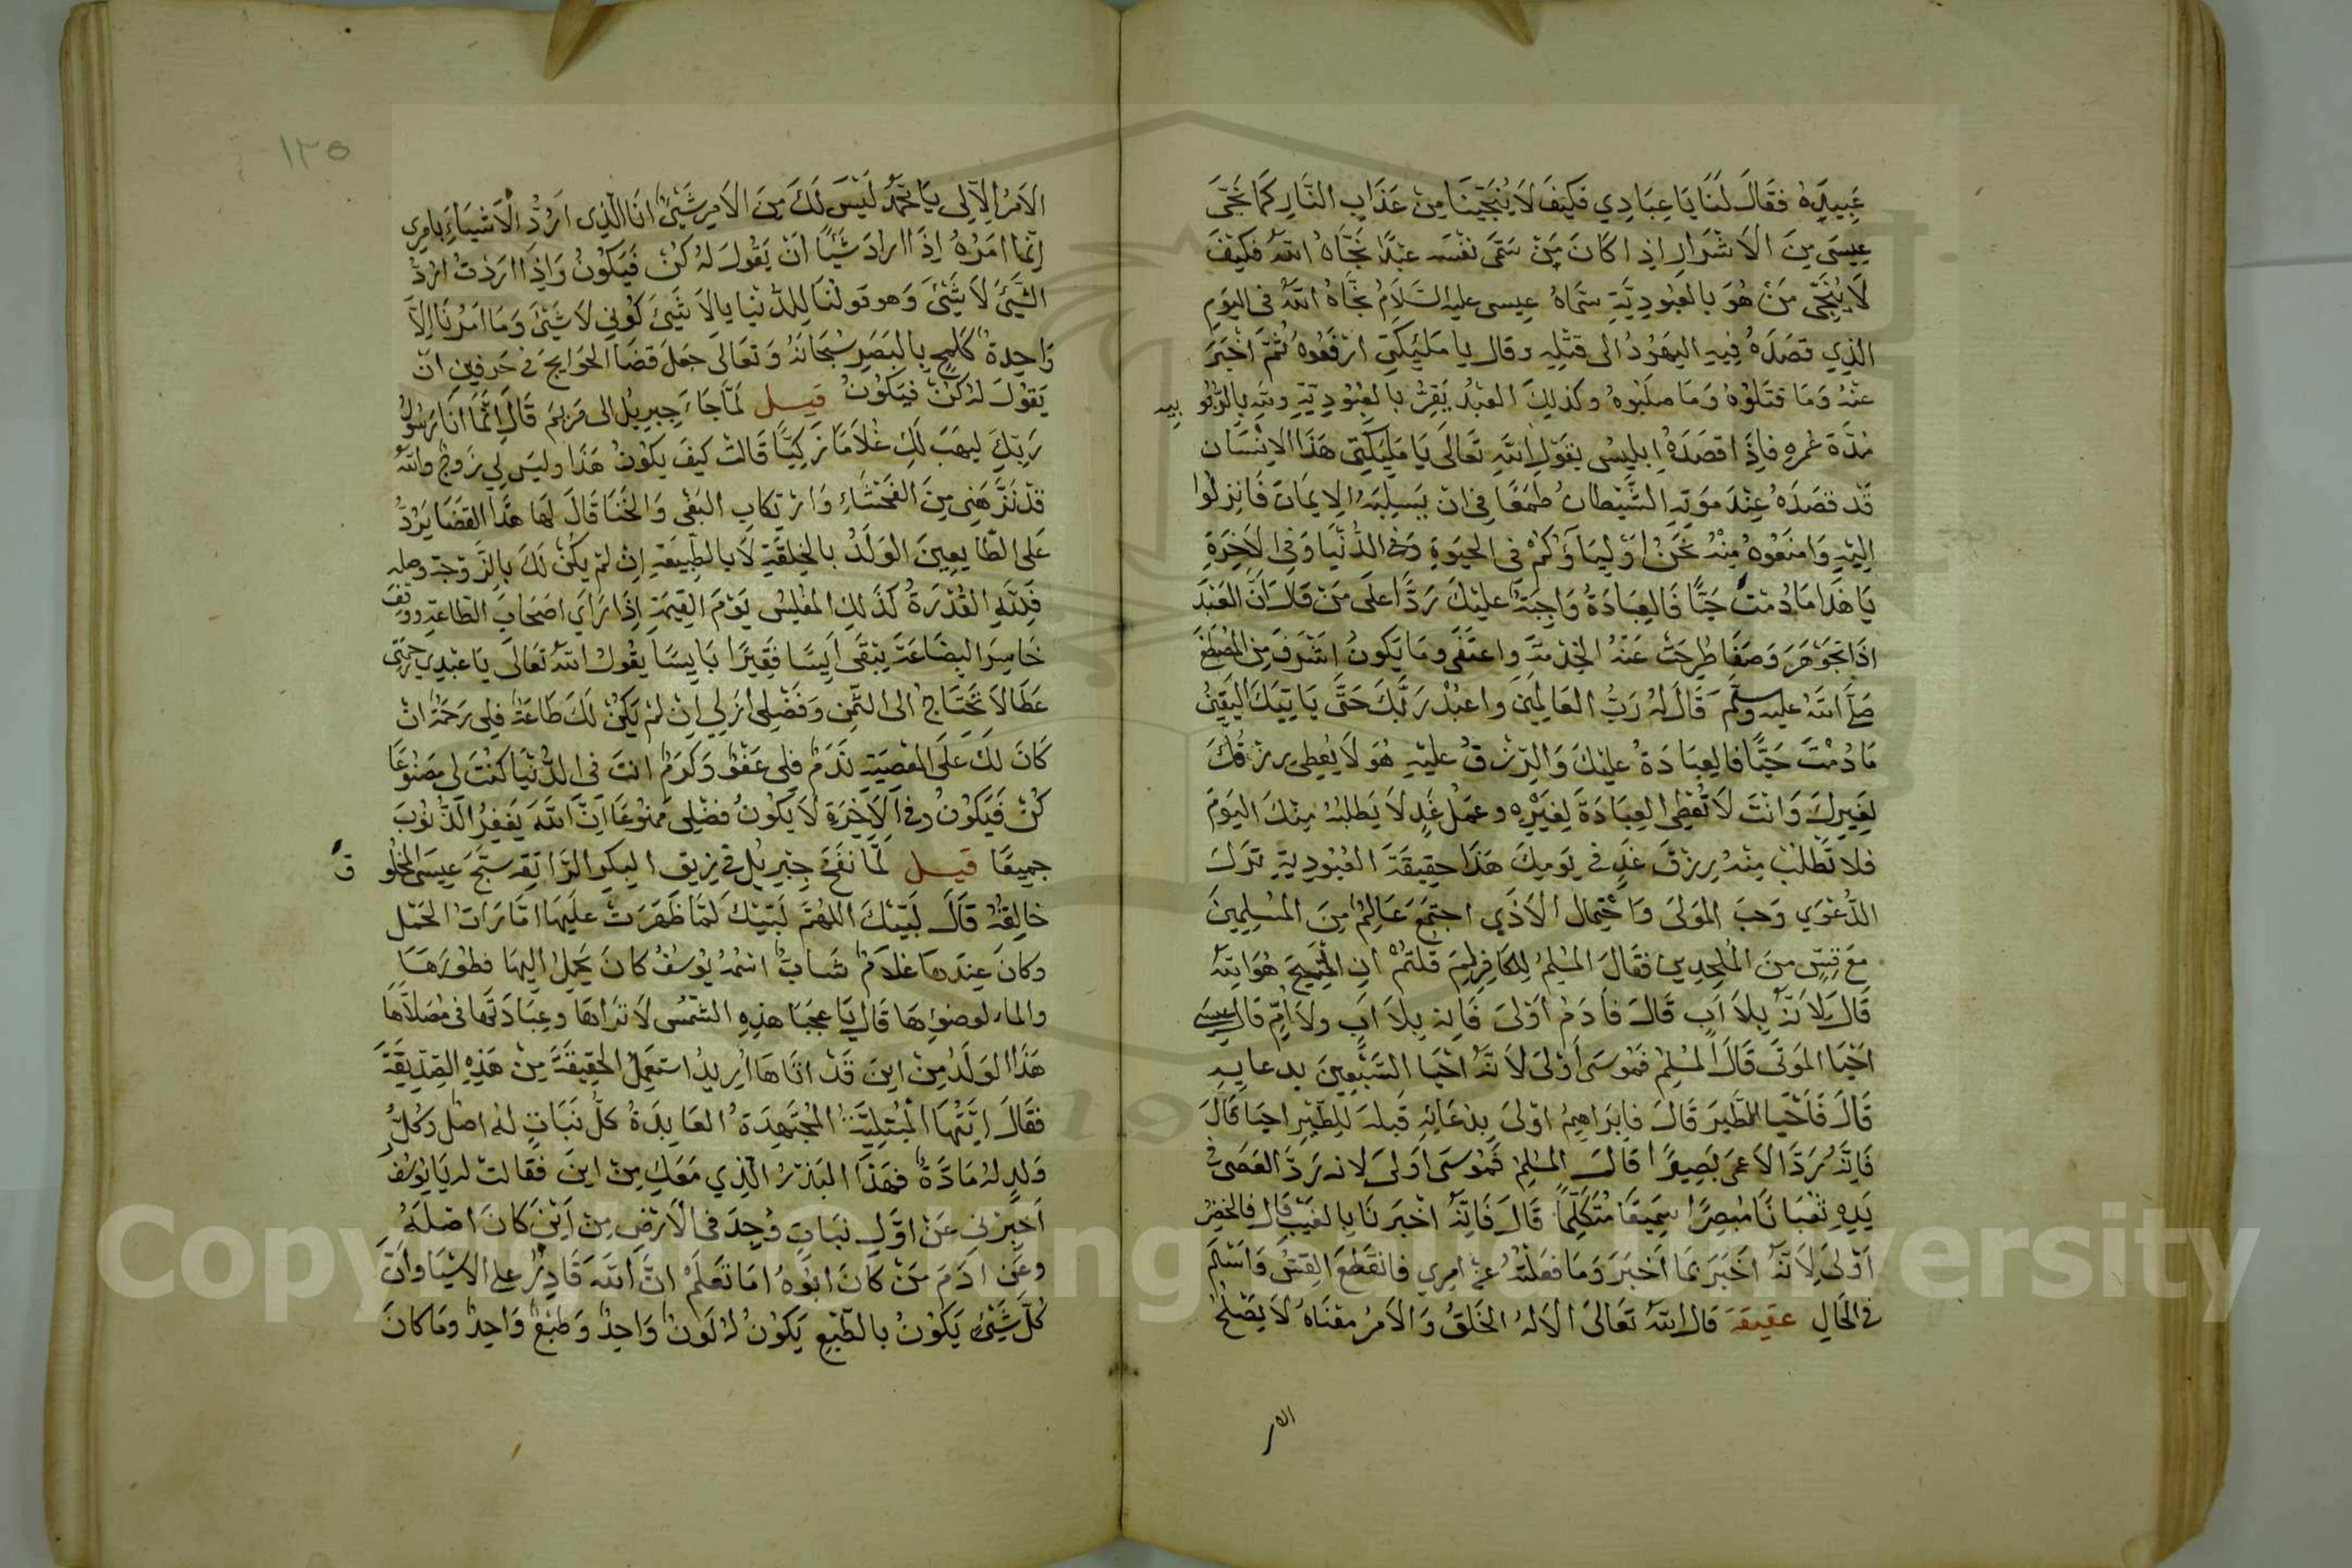 عَبِيدِهِ فقَالَ لَنَا يَا عِبَادِي فَكَيْفَ لَا يُنَجِّينَا مِنْ عَذَابِ النَّارِ كَمَا نَجَّى
عِيسَى مِنَ الاَشْرَارِ اِذَا كَانَ مَنْ سَمَّى نَفْسَه عَبْدًا نَجَّاهُ اللهُ فَكَيْفَ
لَا يُنَجِّى مَنْ هُوَ بِالعُبُودِيَّةِ سَمَّاهُ عِيسى عليه السَّلَامُ نَجَّاهُ اللهُ في اليَومِ
الذِي قصَدَهُ فِيهِ اليَهُودُ الى قتْلِهِ وقال يا مَلَيِكَتِي ارْفَعُوهُ ثُمَّ اخْبَرَ
عَنْهُ وَمَا قتَلُوْهُ وَمَا صلَبُوهُ وكذلِكَ العَبْدُ يُقِرُّ بالعُبُودِيّةِ وللهِ بالرُّبُو بيه
مُدَّةَ عُمرِهِ فاِذَا قصَدَهُ اِبلِيسُ يقوْل اللهُ تَعَالَى يَا مَلَيِكَتِي هَذَا الاِنْسَان
قَدْ قصَدَهُ عِنْدَ مَوتِهِ الشَّيْطانُ طَمَعًا فِي انْ يَسلِبَهُ الايمَانَ فَانزِلُوا
اِلَيْهِ وَامنَعُوهُ مِنْهُ نَحْنُ اَوْلِيَاؤُكُمْ في الحَيَوةِ الدُّنْيَا وَفِي الاَخِرَةِ
يَا هَذَا مَا دُمْتَ حَيًّا فَالعِبَادَةُ وَاجِبَةٌ عَلَيْكَ رَدًّا عَلَى مَنْ قَالَ اَنَّ العَبْدَ
اذَا تجَوْهَرَ وَصَفَا طُرِحَتْ عَنْهُ الخِدْمَةُ وَاعتَفَى وَمَا يَكونُ اشْرَفَ مِنَ المُصْطَفَى
صَلَّى اللهُ عليه وسلّم قَالَ لهُ رَبُّ العَالمِينَ وَاعْبُدْ رَبَّكَ حَتَّى يَاتِيَكَ اليَقِينُ
مَا دُمْتَ حَيًّا فَالعِبَادَةُ عَلَيْكَ وَالرِّزْقُ عليْهِ هُوَ لَا يُعطِى رِزْقَكَ
لِغَيرِكَ وَانْتَ لَا تُعْطِى العِبَادَةَ لِغَيْرِهِ وعمَلُ غَدٍ لَا يَطلُبُهُ مِنْكَ اليَوْمَ
فلا تَطْلُبْ مِنْهُ رِزْقَ غَدٍ في يَومِكَ هَذَا حقِيقَةُ العُبُودِيةِ تَرْكُ
الدَّعْوَي وَحبُّ المَولَى وَاحْتِمال الاَذَي اجتَمَعَ عَالِمٌ مِنَ المُسْلِمِينَ
مَعَ قِسٍّ منَ المُلحِدِينَ فقَالَ المُسْلِمُ لِلكَافِرِ لِمَ قلتُمْ اِن المَسِيحَ هُوَ اللهُ
قَالَ لاَنَّهُ بِلاَ اَبٍ قَالَ فَآدَمُ اَوْلَى فَاِنه بِلاَ اَبٍ ولَا اُمٍّ قَالَ عيسَى
اَحْيَا المَوتَى قَالَ المُسْلِمُ فمُوسَى اَوْلَى لاَنَّهُ احْيَا السَّبْعِينَ بدعايه
قَالَ فَاَحْيَا الطَّيرَ قَالَ فابرَاهِيمُ اَوْلَى بِدُعَائِهِ قَبلَه لِلطَّيْرِ احيَا قَالَ
فَاِنَّهُ رَدَّ الاَعمَى بَصِيرًا قالَ المُسْلِمُ فَمُوسَى اَولَى لانه رَدَّ العَصَى في
يَدِهِ ثعْبَانًا مُبصِرًا سَمِيعًا مُتكَلِّمًا قَالَ فَاِنَّهُ اخْبَرَنَا بِالغَيْبِ قَالَ فَالخضِرُ
اَوْلَى لِاَنَّهُ اَخبَرَ بمَا اَخْبَرَ وَمَا فَعَلْتُهُ عَنْ امرِي فانقَطَعَ القِسُّ وَاَسْلَمَ
في الحَالِ عقيقَة قَالَ اللهُ تعَالَى اَلاَ لهُ الخَلقُ وَالاَمرُ معْنَاهُ لَا يَصْلحُ
الامر
١٢٥
الاَمرُ اِلاّ لِى يَا مُحَمَّدُ لَيْسَ لَكَ مِنَ الاَمرِ شَيْءٌ انَا الّذِى اَرُدُّ الاَشْيَاءَ بِامرِى
اِنَّمَا امرُهُ اِذَا ارادَ شَيْئًا انْ يَقُولَ لهُ كُنْ فَيَكُونُ وَاِذَا ارَدْتُ اَرُدُّ
الشَّيْءَ لاَ شَيْءَ وَهو قولُنَا لِلدُّنْيَا يا لاَ شَيْءَ كُونِي لاَ شَيْءَ وَمَا امرُنَا اِلاَّ
وَاحِدةٌ كَلَمحٍ بِالبَصَرِ سُبحَانَهُ وَتعَالَى جعَلَ قضَا الحَوايجَ في حَرفينِ انْ
يَقُولَ لهُ كُنْ فيَكُونُ قيل لمَّا جَاءَ جِبرِيلُ الى مَريَمَ قَالَ اِنَّمَا انَا رَسُولُ
رَبِّكِ لِيهَبَ لَكِ غُلاَمًا زَكِيًّا قَالتْ كيفَ يكُونُ هَذَا وليسَ لِي زَوجٌ وَاللهُ
قدْ نَزَّهَنِي مِنَ الفَحْشَاءِ وَارْتكَابِ البَغْى وَالخَنَا قَالَ لَهَا هَذَا القضَا يَرُدُّ
عَلَى الطَّايعِينَ الوَلَدُ بالخِلقَةِ لَا بالطَّبِيعَةِ اِنْ لمْ يَكُنْ لَكَ بِالزَّوجَة وصله
فَلِلَّهِ القُدْرَةُ كَذَلِكَ المُفلِسُ يَوْمَ القِيَمَةِ اِذَا رَأَى اصحَابَ الطّاعَةِ ووقفَ
خَاسِرَ البضَاعَةِ يَبْقَى اَيِسًا فقِيرًا بَايِسًا يقُولُ اللهُ تَعَالَى يَا عَبْدِي رَحْمَتِي
عَطَا لاَ تَحْتَاجُ الى الثّمنِ وَفَضْلِى اَزَلِي اِنْ لمْ يَكُنْ لَكَ طَاعَةٌ فلِى رَحمَةٌ انْ
كَانَ لَكَ عَلَى المَعْصِيَةِ نَدَمٌ فلِى عَفْوٌ وَكَرَمٌ انتَ في الدُّنْيَا كُنْتَ لِى مصْنُوعًا
كُنْ فَيَكُونُ وفي الاَخِرَةِ لاَ يَكُونُ فضْلِى مَمنُوعًا اِنَّ اللهَ يَغفِرُ الذُّنوبَ
جميعًا قيل لَمَّا نفَخَ جِبْرِيلُ في زِيقِ البِكرِ الرّايقه سَبَّحَ عِيسَى المخلُو ق
خَالِقَهُ قَالَ لَبَّيْكَ اللهُمَّ لَبَّيْكَ لمَّا ظَهَرَتْ علَيهَا امَارَاتُ الحَمْل
وكانَ عِندهَا غلاَمٌ شَابٌّ اسْمُهُ يُوسُفُ كانَ يَحمِلُ اليهَا فطُورَهَا
والماء لوضُوئِهَا قَالَ يَا عَجَبَا هذِهِ الشّمسُ لاَ تَرَاهَا وعِبَادَتُهَا في مُصَلاَّهَا
هَذَا الوَلَدُ مِنْ اينَ قَدْ اتَاهَا اُرِيدُ استَعْلِمُ الحَقِيقَةَ مِنْ هَذِهِ الصِّدِّيقَةِ
فقَالَ اَيَّتُهَا المُبْتَلِيَةُ المُجْتَهِدَةُ العَابِدَةُ كلُّ نبَاتٍ لهُ اصْلٌ وكُلُّ
وَلدٍ لهُ مَادَّةٌ فهَذَا البَذْرُ الّذِي مَعَكِ مِنْ اينَ فقَالتْ له يَا يُوسُفُ
اَخبِرْنِي عَنْ اوَّلِ نبَاتٍ وُجِدَ في الاَرْضِ مِنْ اَيْنَ كَانَ اصْلَهُ
وعَنْ ادَمَ مَنْ كَانَ ابُوهُ امَا تَعلَمْ انَّ اللهَ قَادِرٌ على الاشيَا وانَّ
كلَّ شَيْءٍ يَكُونُ بالطَّبْعِ يَكُونُ لَهُ لَونٌ وَاحِدٌ وَطَبْعٌ وَاحِدٌ ومَا كانَ
Copyright © King Saud University